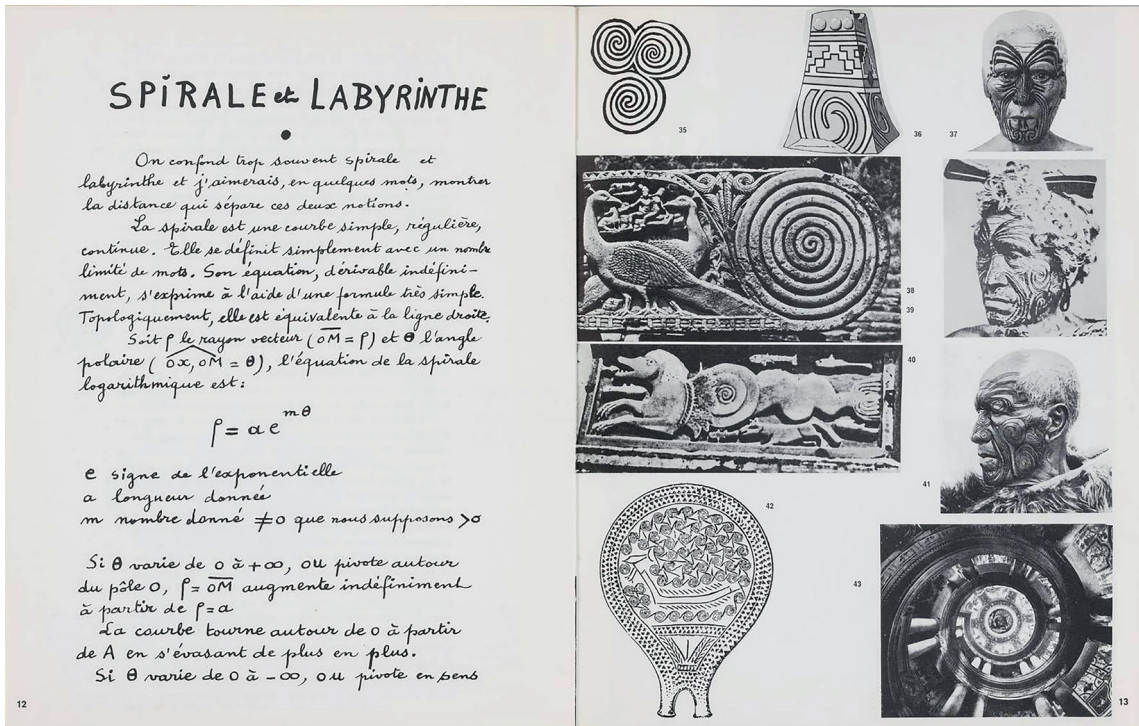 SPIRALE et LABYRINTHE
On confond trop souvent spirale et
labyrinthe et j'aimerais, en quelques mots, montrer
la distance qui sépare ces deux notions.
La spirale est une courbe simple, régulière,
continue. Elle se définit simplement avec un nombre
limité de mots. Son équation, dérivable indéfini-
ment, s'exprime à l'aide d'une formule très simple.
Topologiquement, elle est équivalente à la ligne droite.
Soit ρ le rayon vecteur (OM = ρ) et θ l'angle
polaire (Ox, OM = θ), l'équation de la spirale
logarithmique est:
ρ = a e^mθ
e signe de l'exponentielle
a longueur donnée
m nombre donné ≠ 0 que nous supposons > 0
Si θ varie de 0 à +∞, OM pivote autour
du pôle O, ρ = OM augmente indéfiniment
à partir de ρ = a
La courbe tourne autour de O à partir
de A en s'évasant de plus en plus.
Si θ varie de 0 à -∞, OM pivote en sens
12
35
36
37
38
39
40
41
42
43
13